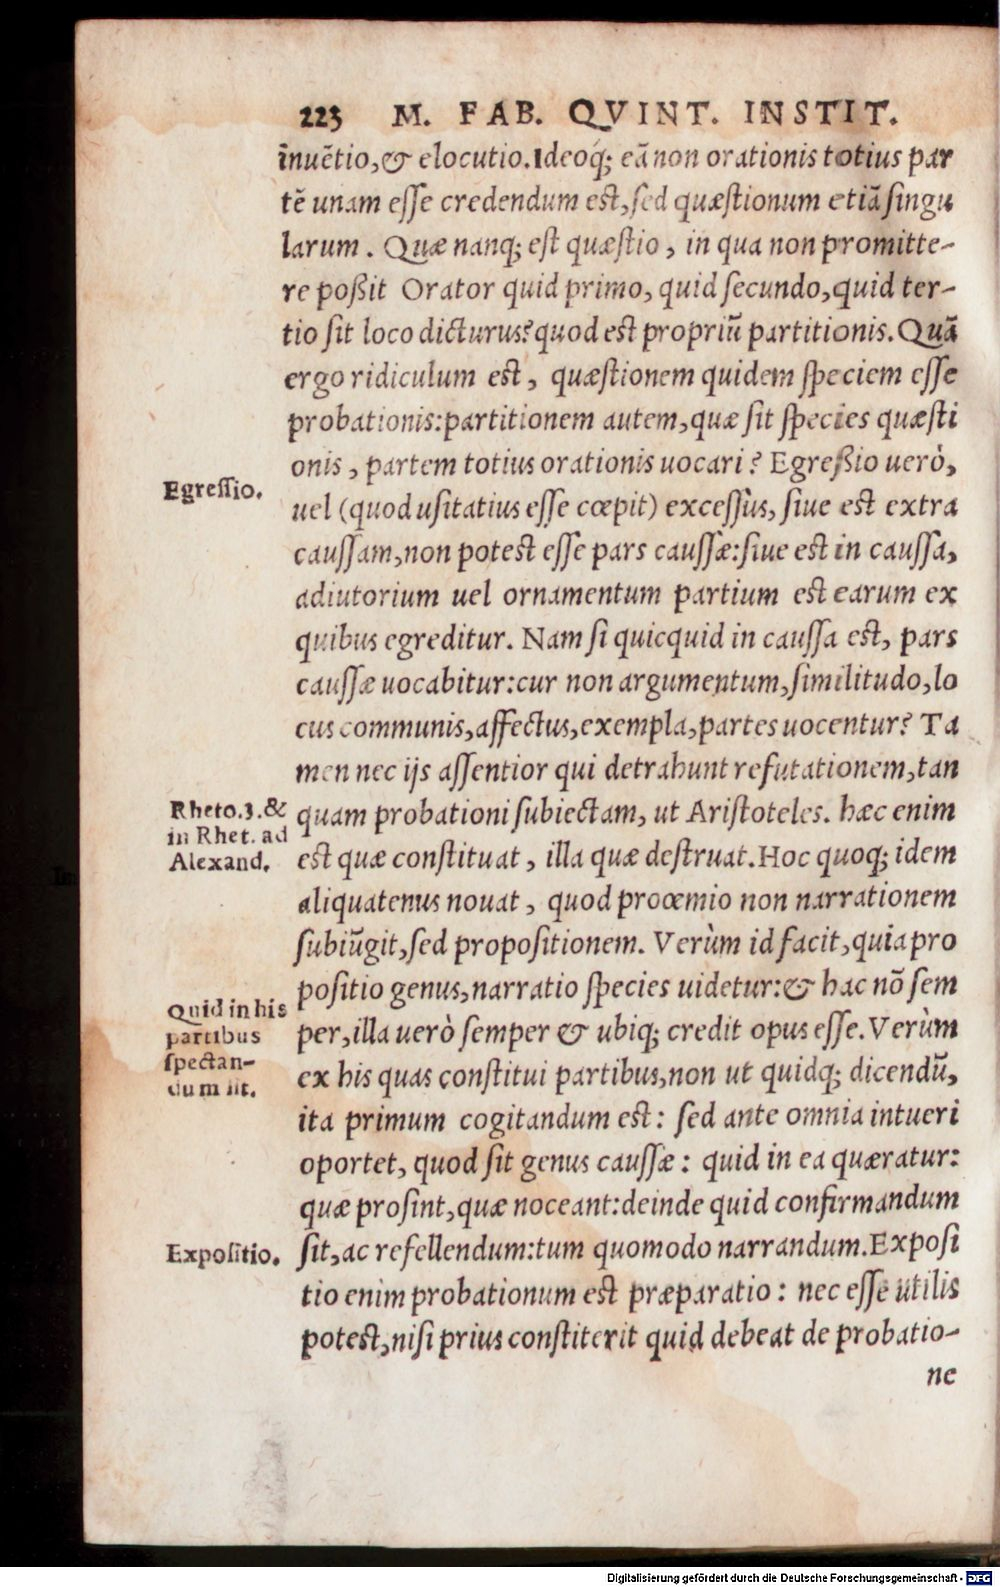 223 M. FAB. QVINT. INSTIT.
inuẽtio, & elocutio. Ideoq́; eã non orationis totius par
tẽ unam esse credendum est, sed quæstionum etiã singu
larum. Quæ nanq; est quæstio, in qua non promitte-
re poßit Orator quid primo, quid secundo, quid ter-
tio sit loco dicturus? quod est propriũ partitionis. Quã
ergo ridiculum est, quæstionem quidem speciem esse
probationis: partitionem autem, quæ sit species quæsti
onis, partem totius orationis uocari? Egreßio uerò,
Egressio.
uel (quod usitatius esse cœpit) excessùs, siue est extra
caussam, non potest esse pars caussæ: siue est in caussa,
adiutorium uel ornamentum partium est earum ex
quibus egreditur. Nam si quicquid in caussa est, pars
caussæ uocabitur: cur non argumentum, similitudo, lo
cus communis, affectus, exempla, partes uocentur? Ta
men nec ijs assentior qui detrahunt refutationem, tan
Rheto. 3. &
in Rhet. ad
Alexand.
quam probationi subiectam, ut Aristoteles. hæc enim
est quæ constituat, illa quæ destruat. Hoc quoq; idem
aliquatenus nouat, quod proœmio non narrationem
subiũgit, sed propositionem. Verùm id facit, quia pro
positio genus, narratio species uidetur: & hac nõ sem
Quid in his
partibus
spectan-
dum sit.
per, illa uerò semper & ubiq; credit opus esse. Verùm
ex his quas constitui partibus, non ut quidq; dicendũ,
ita primum cogitandum est: sed ante omnia intueri
oportet, quod sit genus caussæ: quid in ea quæratur:
quæ prosint, quæ noceant: deinde quid confirmandum
Expositio.
sit, ac refellendum: tum quomodo narrandum. Exposi
tio enim probationum est præparatio: nec esse utilis
potest, nisi prius constiterit quid debeat de probatio-
ne
Digitalisierung gefördert durch die Deutsche Forschungsgemeinschaft - DFG